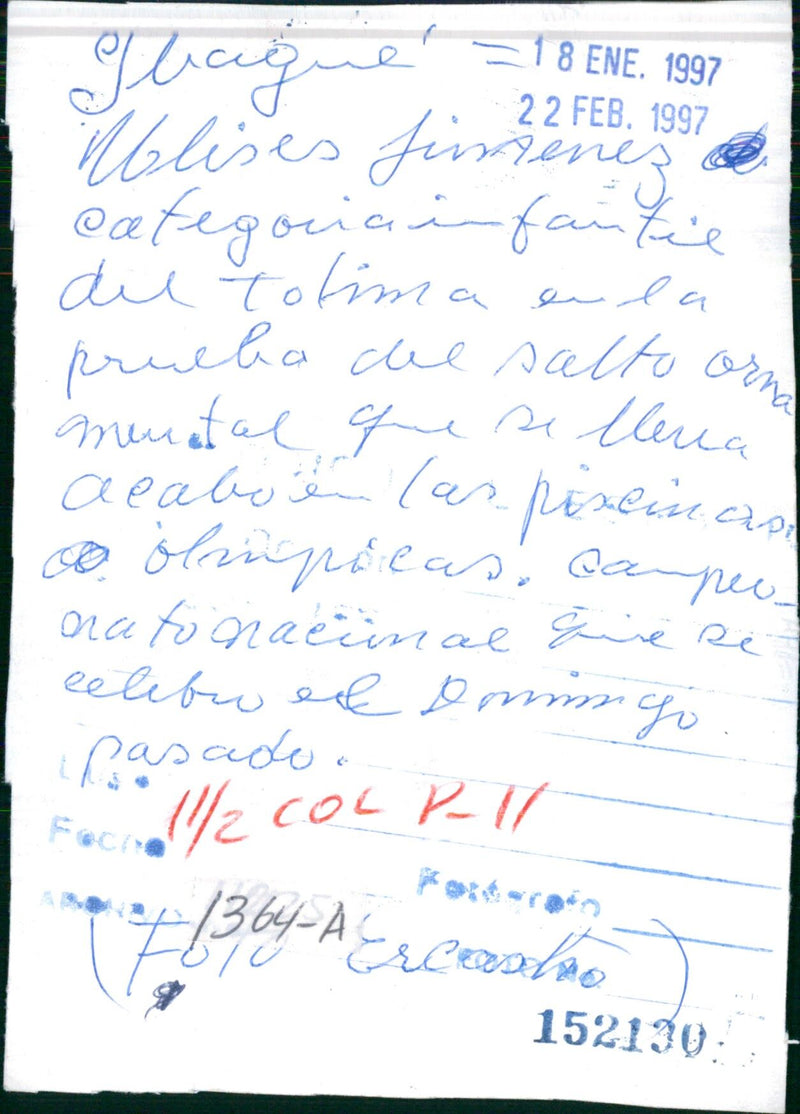 Ibagué = 18 ENE. 1997
22 FEB. 1997
Ulises Jimenez
categoria infantil
del Tolima en la
prueba del salto orna
mental que se lleva
acabo en las piscinas
olimpicas. Campeo-
nato nacional que se
celebro el Domingo
pasado.
1 1/2 COL P-11
Fecha
Fotógrafo
ARCHIVO 1364-A
(Foto Ercastro)
152130